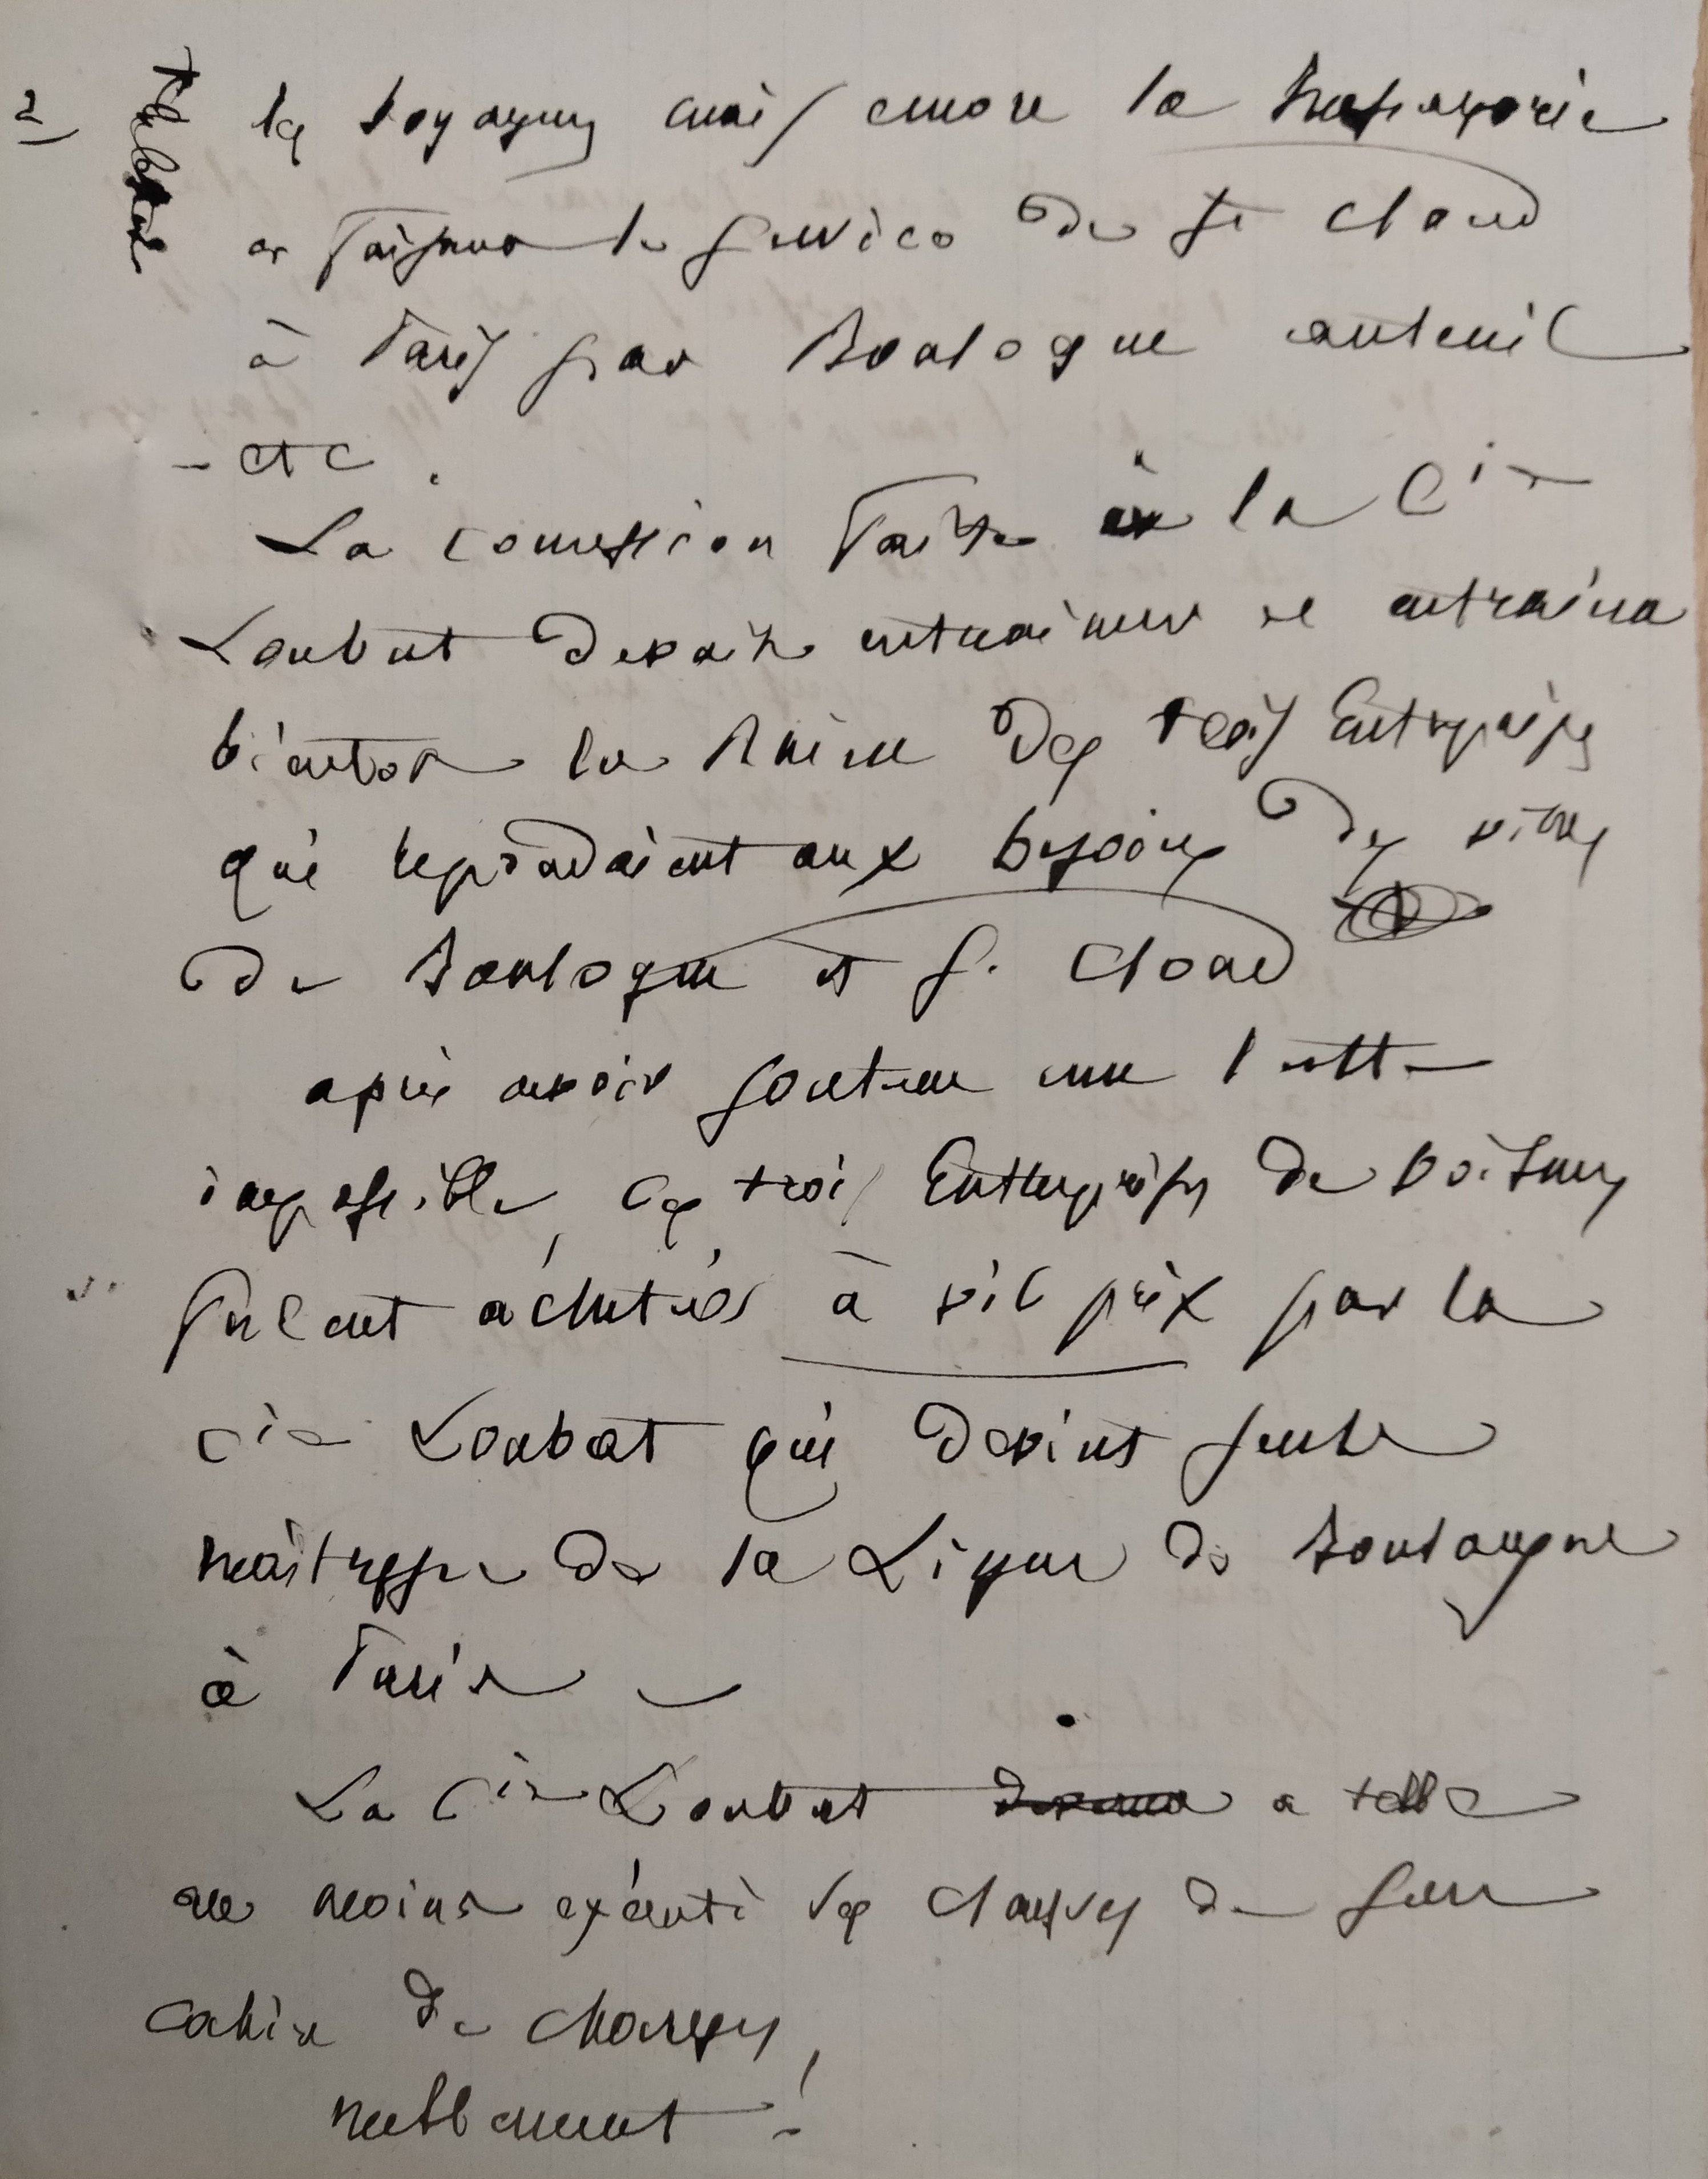 2)
les voyageurs mais encore la messagerie
et faisant le service de St Cloud
à Paris par Boulogne auteuil
- etc.
La concession faite à la Cie
Loubat devait entrainer et entraina
bientot la Ruine des trois Entreprises
qui repondaient aux besoins des villes
de Boulogne et St. Cloud
après avoir soutenu une lutte
impossible, ces trois Entreprises de voitures
furent achetées à vil prix par la
Cie Loubat qui devint seule
maitresse de la Ligne de Boulogne
à Paris -
La Cie Loubat a telle
au moins exécuté les clauses de son
cahier de charges,
nullement !